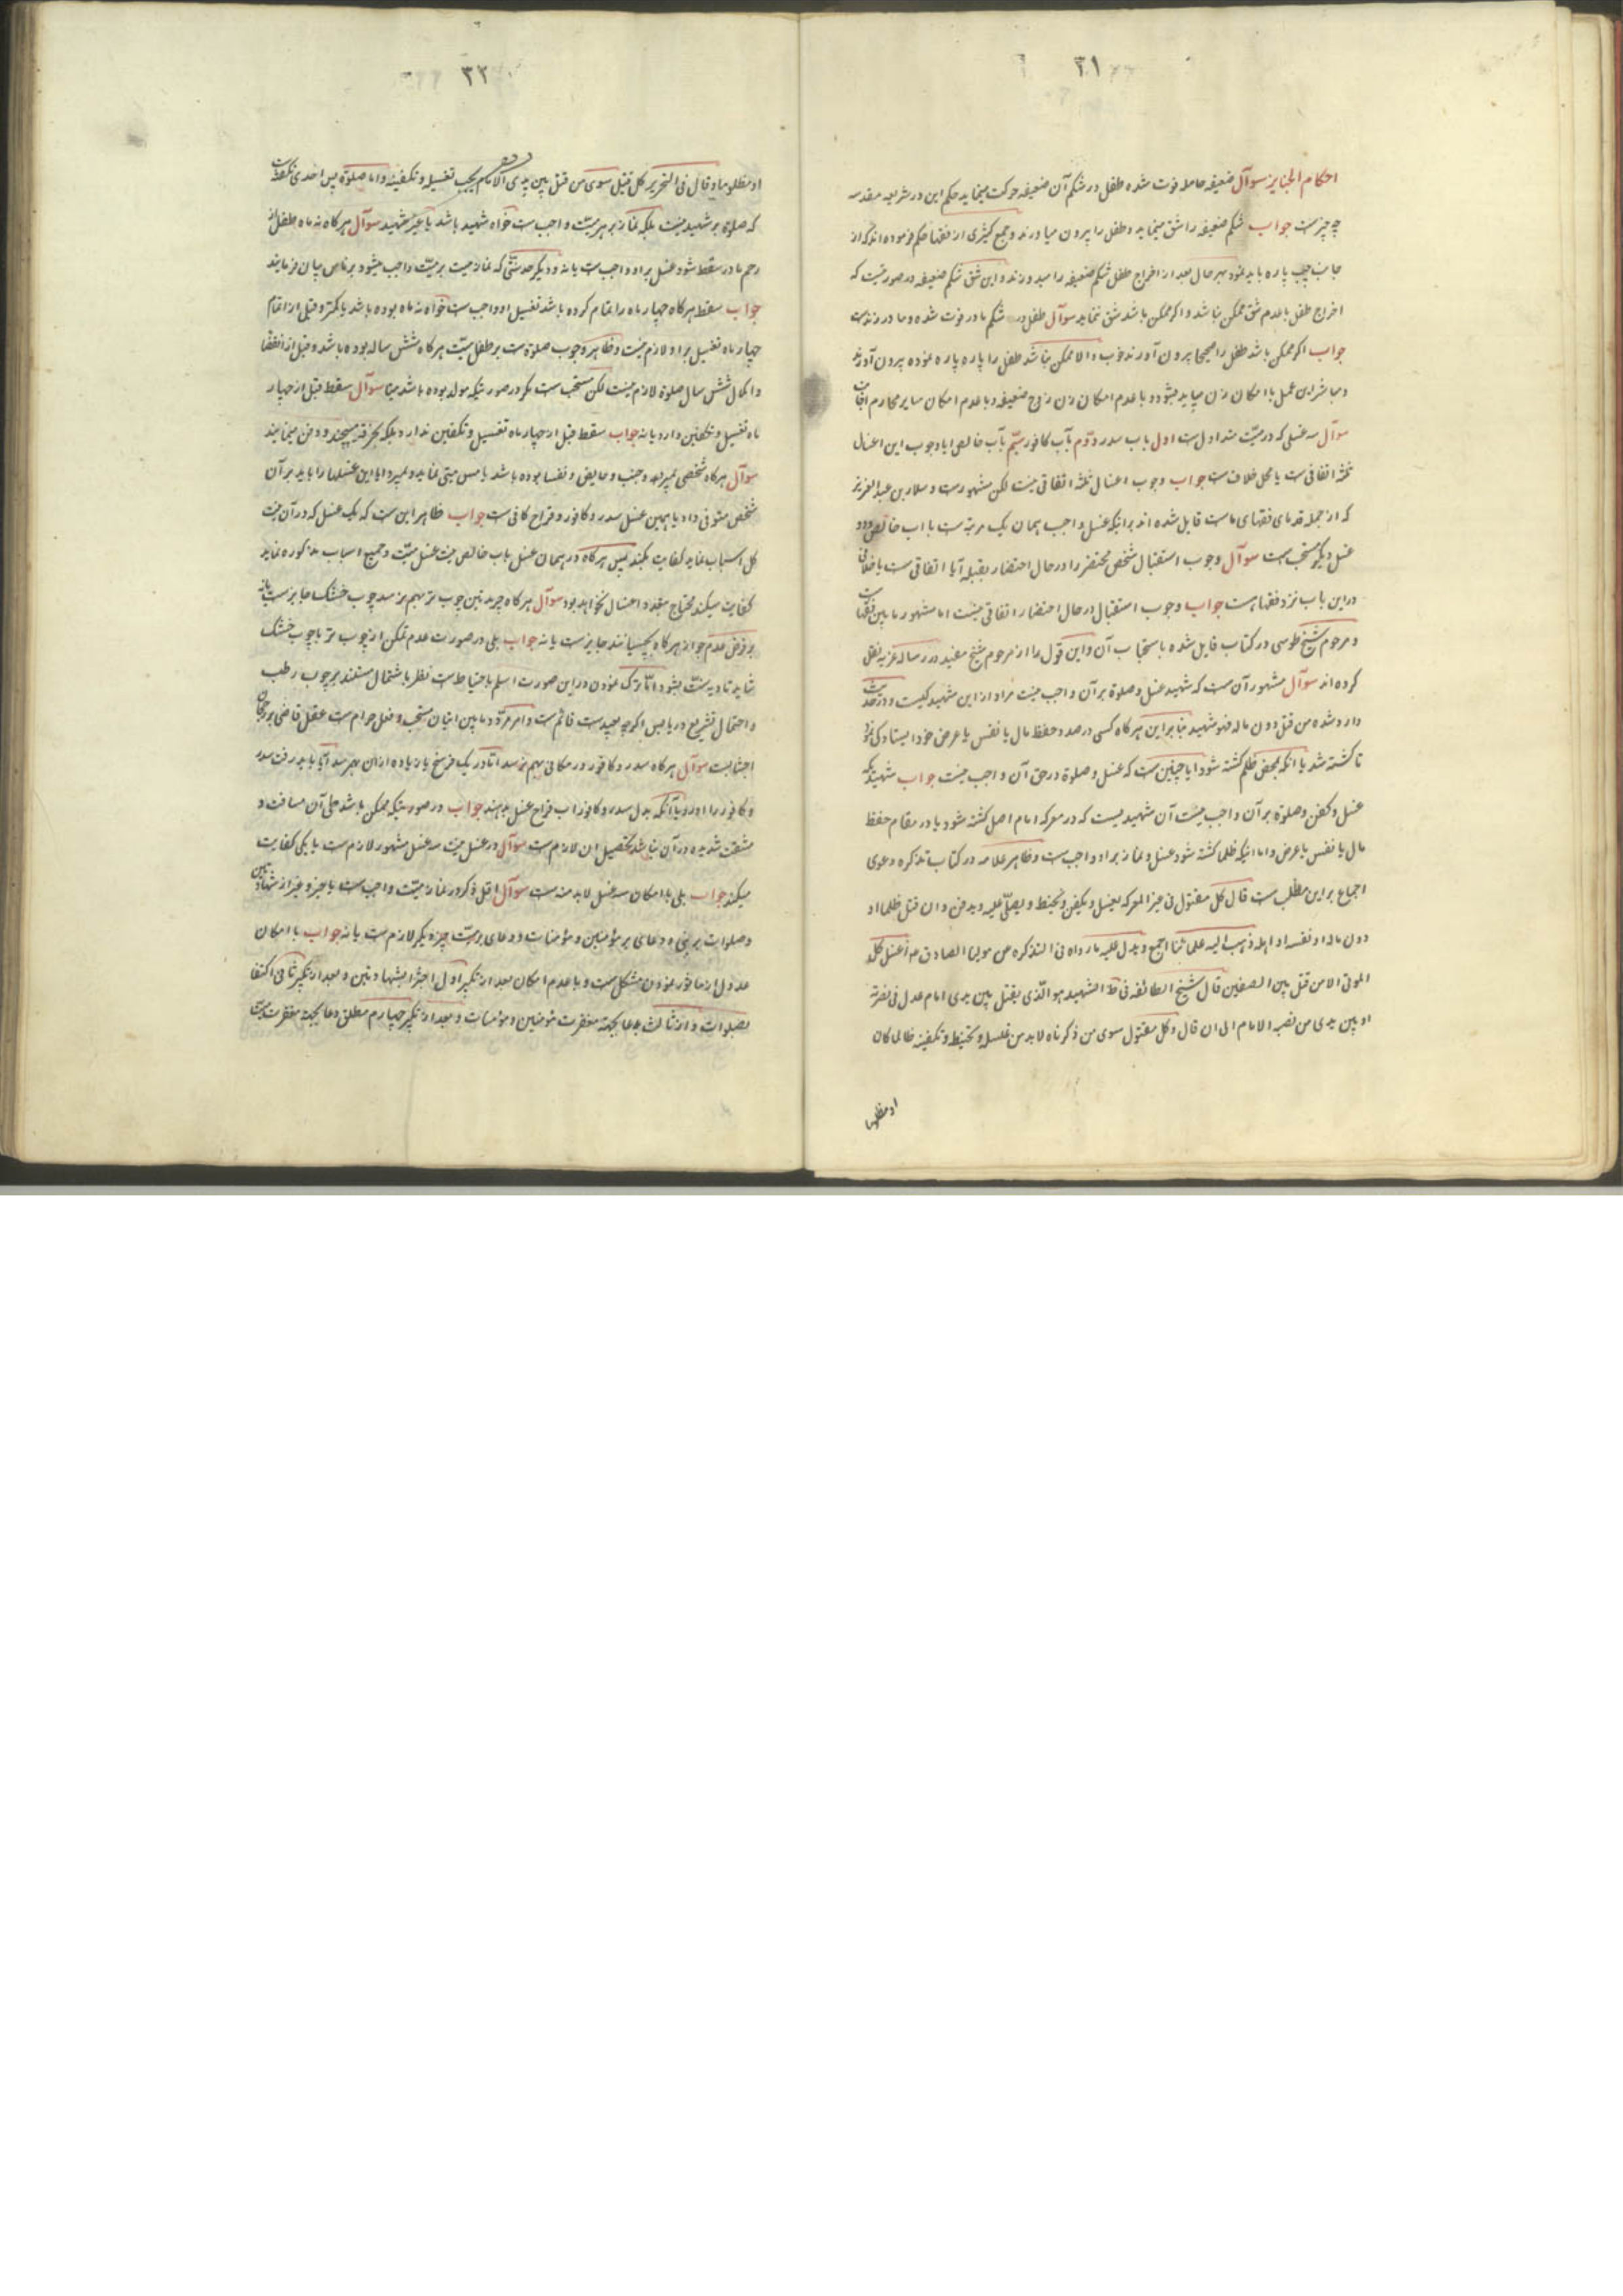 ۳۱
احکام الجنایز سوآل ضعیفه حامله فوت شده طفل در شکم آن ضعیفه حرکت مینماید حکم این در شریعه مقدسه
چه چیزست جواب شکم ضعیفه را شق مینماید و طفل را بیرون میاورند و جمع کثیری از فقها حکم فرموده اند که از
جانب چپ پاره باید نمود بهر حال بعد از اخراج طفل شکم ضعیفه را میدوزند و این شق شکم ضعیفه در صورتیست که
اخراج طفل با عدم شق ممکن نباشد و اگر ممکن باشد شق ننماید سوآل طفل در شکم مادر فوت شده و مادر زندست
جواب اگر ممکن باشد طفل را صحیحا بیرون آورند خوب و الا ممکن نباشد طفل را پاره پاره نموده بیرون آورند
و مباشر این عمل با امکان زن میباید بشود و با عدم امکان زن زوج ضعیفه و با عدم امکان سایر محارم
سوآل سه غسلی که در میّت متداولست اول بآب سدر دوّم بآب کافور سیّم بآب خالص ایا وجوب این اغسال
ثلثه اتفاقی ست یا محل خلافست جواب وجوب اغسال ثلثه اتفاقی نیست لکن مشهورست و سلار بن عبدالعزیز
که از جمله قدمای فقهای ماست قایل شده اند برانیکه غسل واجب همان یک مرتبه ست با اب خالص و دو
غسل دیگر مستحب ست سوآل وجوب استقبال شخص محتضر را در حال احتضار بقبله آیا اتفاقی ست یا خلافی
در این باب نزد فقها هست جواب وجوب استقبال در حال احتضار اتفاقی نیست اما مشهور مابین فقهاست
و مرحوم شیخ طوسی در کتاب قایل شده باستحباب آن و این قول را از مرحوم شیخ مفید در رساله غریه نقل
کرده اند سوآل مشهور آن ست که شهید غسل و صلوة بر آن واجب نیست مراد از این شهید کیست و در حدیث
وارد شده من قتل دون ماله فهو شهید بنابراین هر گاه کسی در صدد حفظ مال یا نفس یا عرض خود ایستادگی نمود
تا کشته شد یا انکه بمحض ظلم کشته شود ایا چنین ست که غسل و صلوة در حق آن واجب نیست جواب شهیدیکه
غسل و کفن و صلوة بر آن واجب نیست آن شهیدیست که در معرکه امام اصل کشته شود یا در مقام حفظ
مال یا نفس یا عرض و اما انیکه ظلما کشته شود غسل و نماز بر او واجب ست و ظاهر علامه در کتاب تذکره دعوی
اجماع بر این مطلب ست قال کل مقتول فی غیر المعرکه یغسل و یکفن و یحنط و یصلّی علیه و یدفن و ان قتل ظلما او
دون ماله او نفسه او اهله ذهب الیه علمائنا اجمع و یدل علیه ما رواه فی التذکره عن مولینا الصادق ع اغسل کل
الموتی الا من قتل بین الصفین قال شیخ الطائفه فی ط الشهید هو الّذی یقتل بین یدی امام عدل فی نصرته
او بین یدی من نصبه الامام الی ان قال و کل مقتول سوی من ذکرناه لابد من غسله و تحنیطه و تکفینه ظالما کان
او مظلوما
۳۲
او مظلوما و قال فی التحریر کل قتیل سوی من قتل بین یدی الامام یجب تغسیله و تکفینه و اما صلوة پس احدی نگفته ست
که صلوة بر شهید نیست بلکه نماز بر هر میّت واجب ست خواه شهید باشد یا غیر شهید سوآل هر گاه نه ماه طفل از
رحم مادر سقط شود غسل بر او واجب ست یا نه و دیگر حد سنّی که نماز میت بر میّت واجب میشود بر ماس بیان فرمایند
جواب سقط هر گاه چهار ماه را تمام کرده باشد تغسیل او واجب ست خواه نه ماه بوده باشد یا کمتر و قبل از اتمام
چهار ماه تغسیل بر او لازم نیست و ظاهر وجوب صلوة ست بر طفل میّت هر گاه شش ساله بوده باشد و قبل از انقضا
و اکمال شش سال صلوة لازم نیست لکن مستحب ست مگر در صورتیکه مولد بوده باشد میتا سوآل سقط قبل از چهار
ماه تغسیل و تکفین دارد یا نه جواب سقط قبل از چهار ماه تغسیل و تکفین ندارد بلکه بخرقه پیچند و دفن مینمایند
سوآل هر گاه شخصی بمیرد و جنب و حایض و نفسا بوده باشد یا مس میتی نماید و بمیرد ایا این غسلها را باید بر آن
شخص متوفی داد یا همین غسل سدر و کافور و قراح کافی ست جواب ظاهر این ست که یک غسل که در آن نیت
کل اسباب نماید کفایت بکند پس هر گاه در همان غسل باب خالص نیت غسل میّت و جمیع اسباب مذکوره نماید
کفایت میکند محتاج بتعدد اغسال نخواهد بود سوآل هر گاه جریدتین چوب تر بهم نرسد چوب خشک جایزست یا نه
بر فرض عدم جواز هر گاه بخیسانند جایزست یا نه جواب بلی در صورت عدم تمکن از چوب تر با چوب خشک
شاید تادیه سنّت بشود امّا ترک نمودن در این صورت اسلم باحتیاط ست نظر باشتمال مستند بر چوب رطب
و احتمال تشریع در یابس اگرچه بعیدست قائم ست و امر مردّد مابین اتیان مستحب و فعل حرام ست عقل قاضی بر رجحان
اجتنابست سوآل هر گاه سدر و کافور در مکانی بهم نرسد اما در یک فرسخ یا زیاده از ان بهم رسد آیا باید رفت سدر
و کافور را اورد یا آنکه بدل سدر و کافور اب قراح غسل بدهند جواب در صورتیکه ممکن باشد طی آن مسافت و
مشقت شدیده در آن نباشد تحصیل ان لازم ست سوآل در غسل میّت سه غسل مشهور لازم ست یا یکی کفایت
میکند جواب بلی با امکان سه غسل لابد منه ست سوآل اقل ذکر در نماز میّت واجب ست یا چیزی غیر از شهادتین
و صلوات بر نبی و دعای بر مؤمنین و مؤمنات و دعای بر میّت چیز دیگر لازم ست یا نه جواب با امکان
عدول از ماثور نمودن مشکل ست و با عدم امکان بعد از تکبیر اول اجتزا بشهادتین و بعد از تکبیر ثانی اکتفا
بصلوات و از ثالث بدعا بجهة مغفرت مومنین و مؤمنات و بعد از تکبیر چهارم مطلق دعا بجهة مغفرت میّت